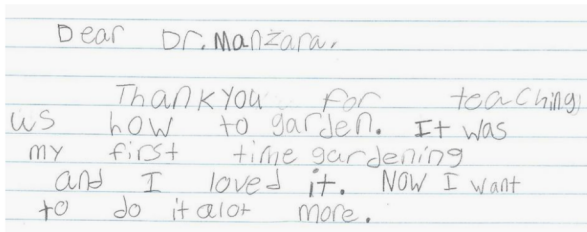 Dear Dr. Manzara,
Thank you for teaching
us how to garden. It was
my first time gardening
and I loved it. Now I want
to do it alot more.